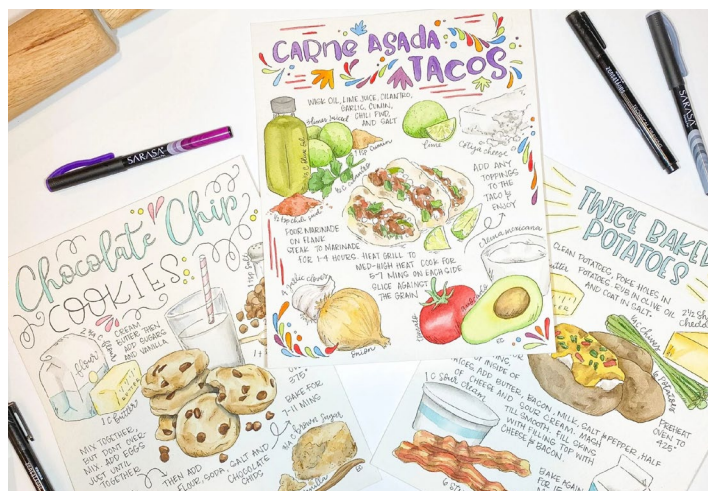 CARNE ASADA
TACOS
WISK OIL, LIME JUICE, CILANTRO,
GARLIC, CUMIN,
CHILI PWD,
AND SALT
limes juiced
olive oil
cumin
lime
cotija cheese
ADD ANY
TOPPINGS
TO THE
TACO &
ENJOY
POUR MARINADE
ON FLANK
STEAK TO MARINADE
FOR 1-4 HOURS. HEAT GRILL TO
MED-HIGH HEAT COOK FOR
5-7 MINS ON EACH SIDE
SLICE AGAINST
THE GRAIN
crema mexicana
garlic cloves
onion
tomato
SARASA
Chocolate Chip
COOKIES
flour
CREAM
BUTTER THEN
ADD SUGARS
AND VANILLA
1 C butter
MIX TOGETHER,
BUT DON'T OVER-
MIX. ADD EGGS
JUST UNTIL
TOGETHER
THEN ADD
FLOUR, SODA, SALT AND
CHOCOLATE
CHIPS
375°
BAKE FOR
7-11 MINS
brown sugar
vanilla
TWICE BAKED
POTATOES
CLEAN POTATOES, POKE HOLES IN
POTATOES. RUB IN OLIVE OIL
AND COAT IN SALT.
butter
chives
6 potatoes
PREHEAT
OVEN TO
425°
INSIDE OF
POTATOES, ADD BUTTER, BACON, MILK, SALT & PEPPER, HALF
OF CHEESE AND SOUR CREAM. MASH
TILL SMOOTH. FILL SKINS
WITH FILLING TOP WITH
CHEESE & BACON.
1 C sour cream
BAKE AGAIN
SARASA